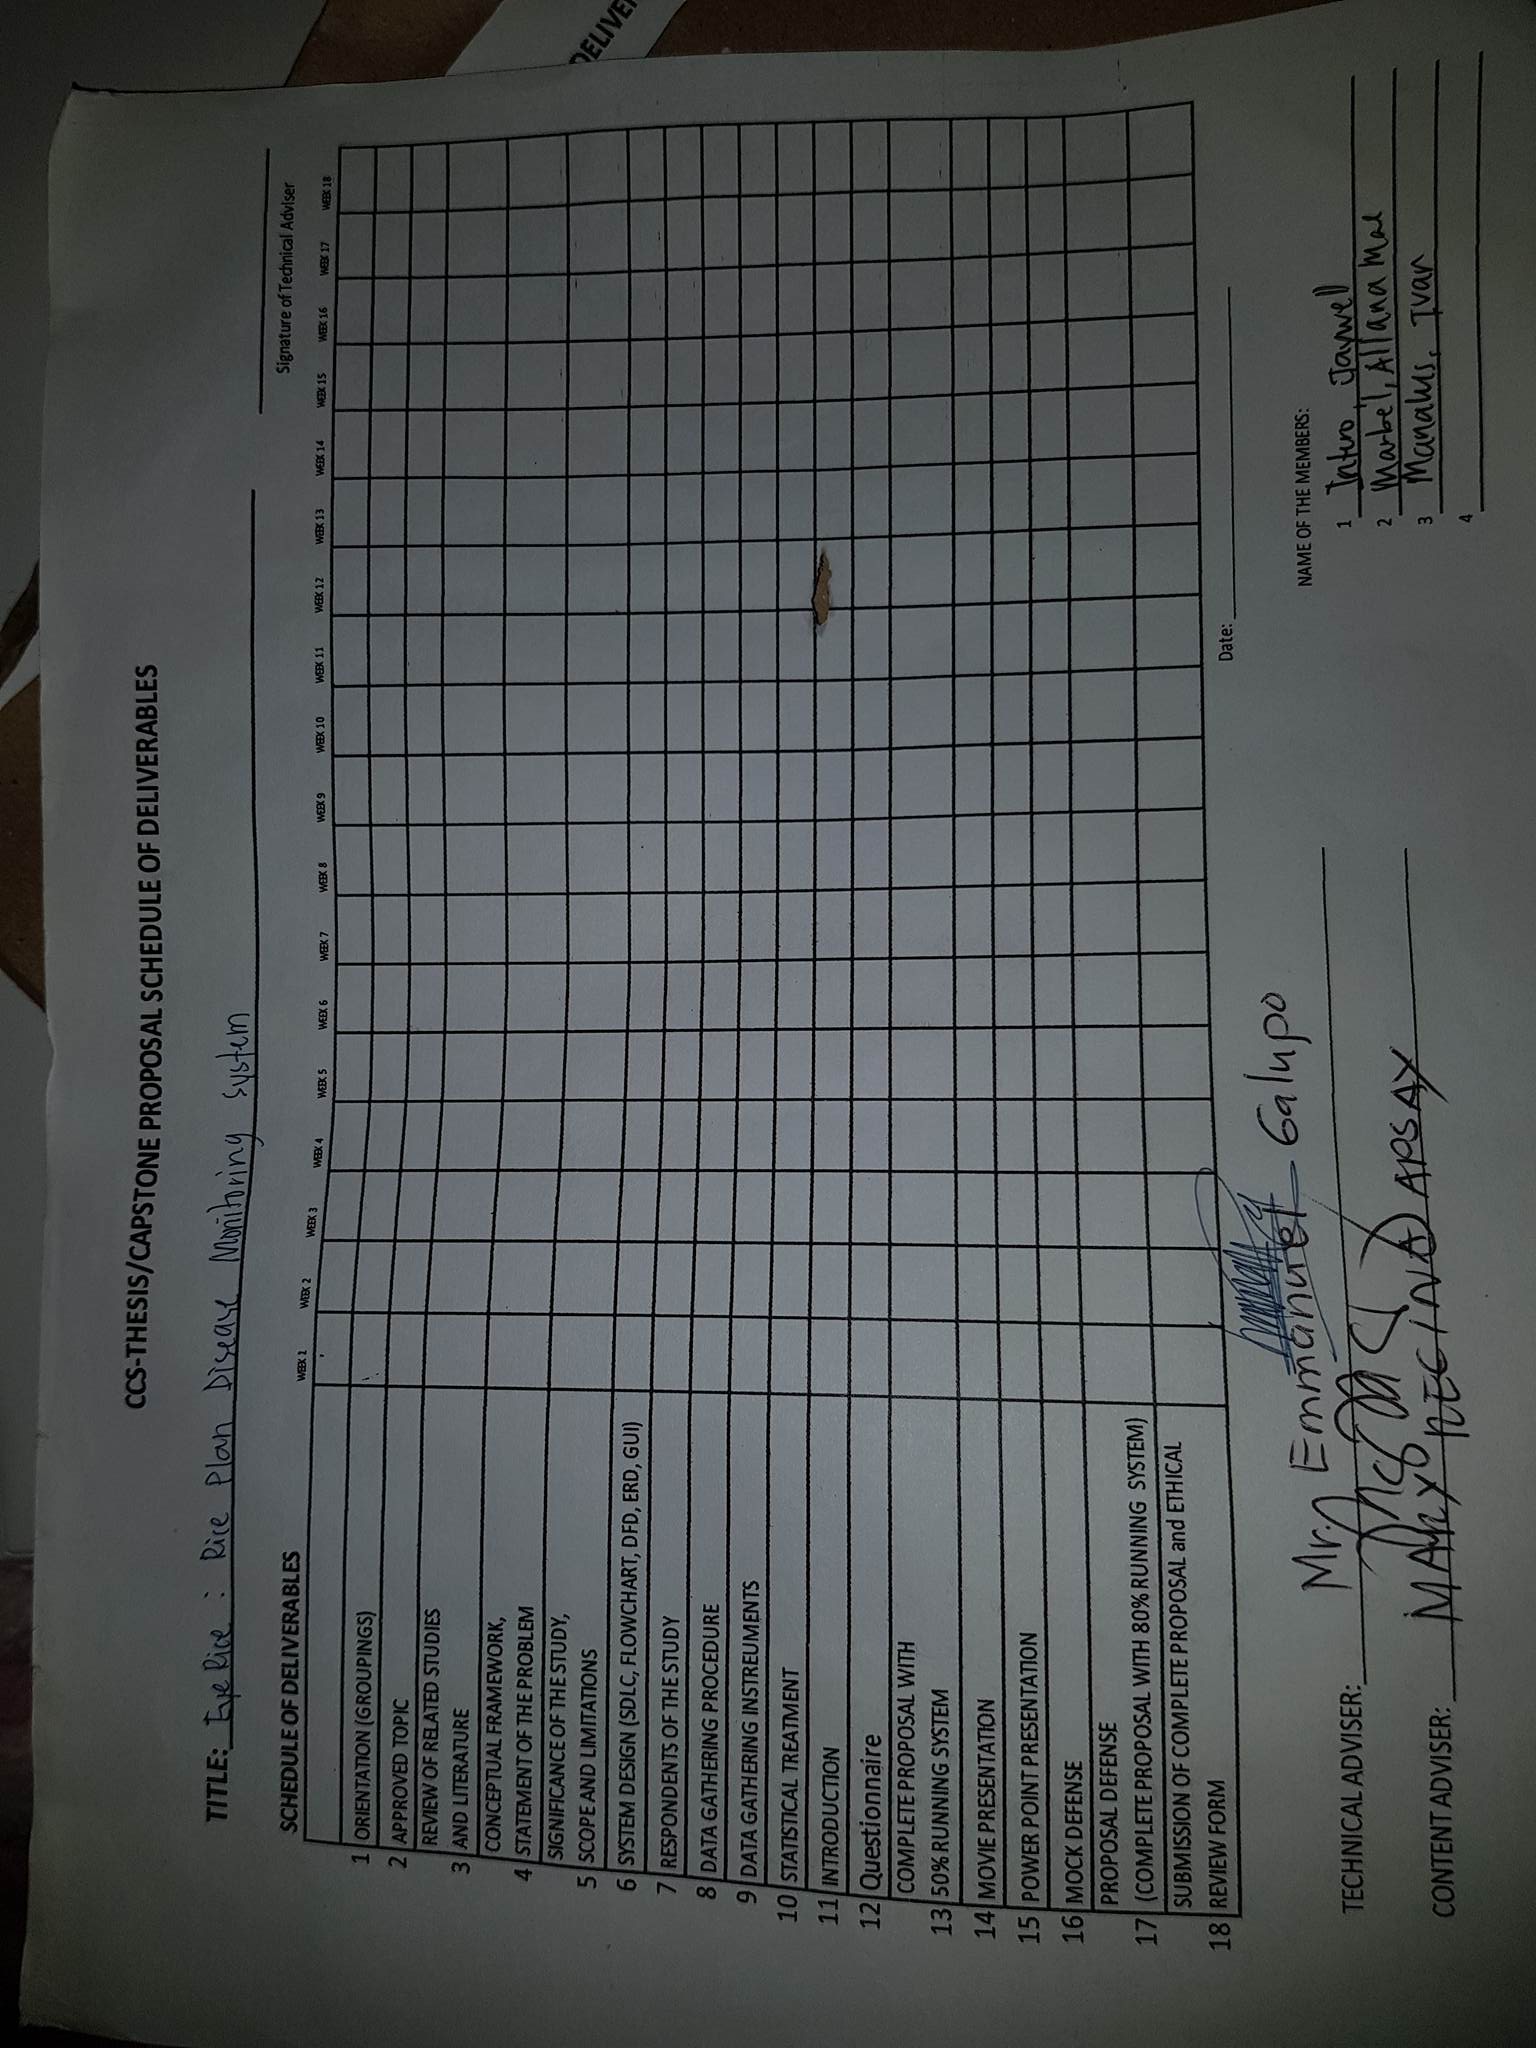 DELIVE
CCS-THESIS/CAPSTONE PROPOSAL SCHEDULE OF DELIVERABLES
TITLE: Eye Rice : Rice Plan Disease Monitoring System
Signature of Technical Adviser
SCHEDULE OF DELIVERABLES
WEEK 2 WEEK 2 WEEK 3 WEEK 4 WEEK 5 WEEK 6 WEEK 7 WEEK 8 WEEK 9 WEEK 10 WEEK 11 WEEK 12 WEEK 13 WEEK 14 WEEK 15 WEEK 16 WEEK 17 WEEK 18
1 ORIENTATION (GROUPINGS)
2 APPROVED TOPIC
REVIEW OF RELATED STUDIES
3 AND LITERATURE
CONCEPTUAL FRAMEWORK,
4 STATEMENT OF THE PROBLEM
SIGNIFICANCE OF THE STUDY,
5 SCOPE AND LIMITATIONS
6 SYSTEM DESIGN (SDLC, FLOWCHART, DFD, ERD, GUI)
7 RESPONDENTS OF THE STUDY
8 DATA GATHERING PROCEDURE
9 DATA GATHERING INSTREUMENTS
10 STATISTICAL TREATMENT
11 INTRODUCTION
12 Questionnaire
COMPLETE PROPOSAL WITH
13 50% RUNNING SYSTEM
14 MOVIE PRESENTATION
15 POWER POINT PRESENTATION
16 MOCK DEFENSE
PROPOSAL DEFENSE
17 (COMPLETE PROPOSAL WITH 80% RUNNING SYSTEM)
SUBMISSION OF COMPLETE PROPOSAL and ETHICAL
18 REVIEW FORM
Date:
TECHNICAL ADVISER: Mr. Emmanuel Galupo
CONTENT ADVISER:
NAME OF THE MEMBERS:
1 Jaywell
2 Marbel, Allana Mae
3 Manalus, Ivan
4